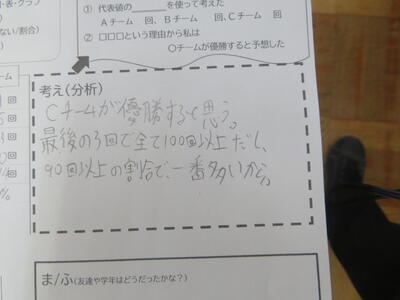 表・グラフ
ない/割合)
チーム
回
① 代表値の______を使って考えた
Aチーム 回、Bチーム 回、Cチーム 回
② □□□という理由から私は
○チームが優勝すると予想した
考え(分析)
Cチームが優勝すると思う。
最後の3回で全て100回以上だし、
90回以上の割合で、一番多いから。
ま/ふ(友達や学年はどうだったかな?)